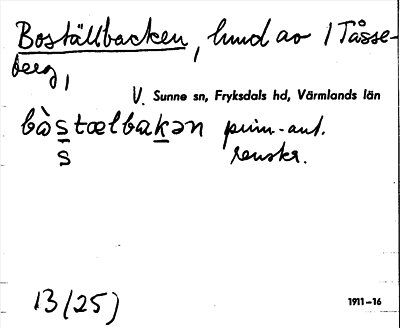 Boställbacken, lund av 1 Tåsse-
berg,
V. Sunne sn, Fryksdals hd, Värmlands län
bàstælbakən prim-ant.
s renskr.
13 (25)
1911–16